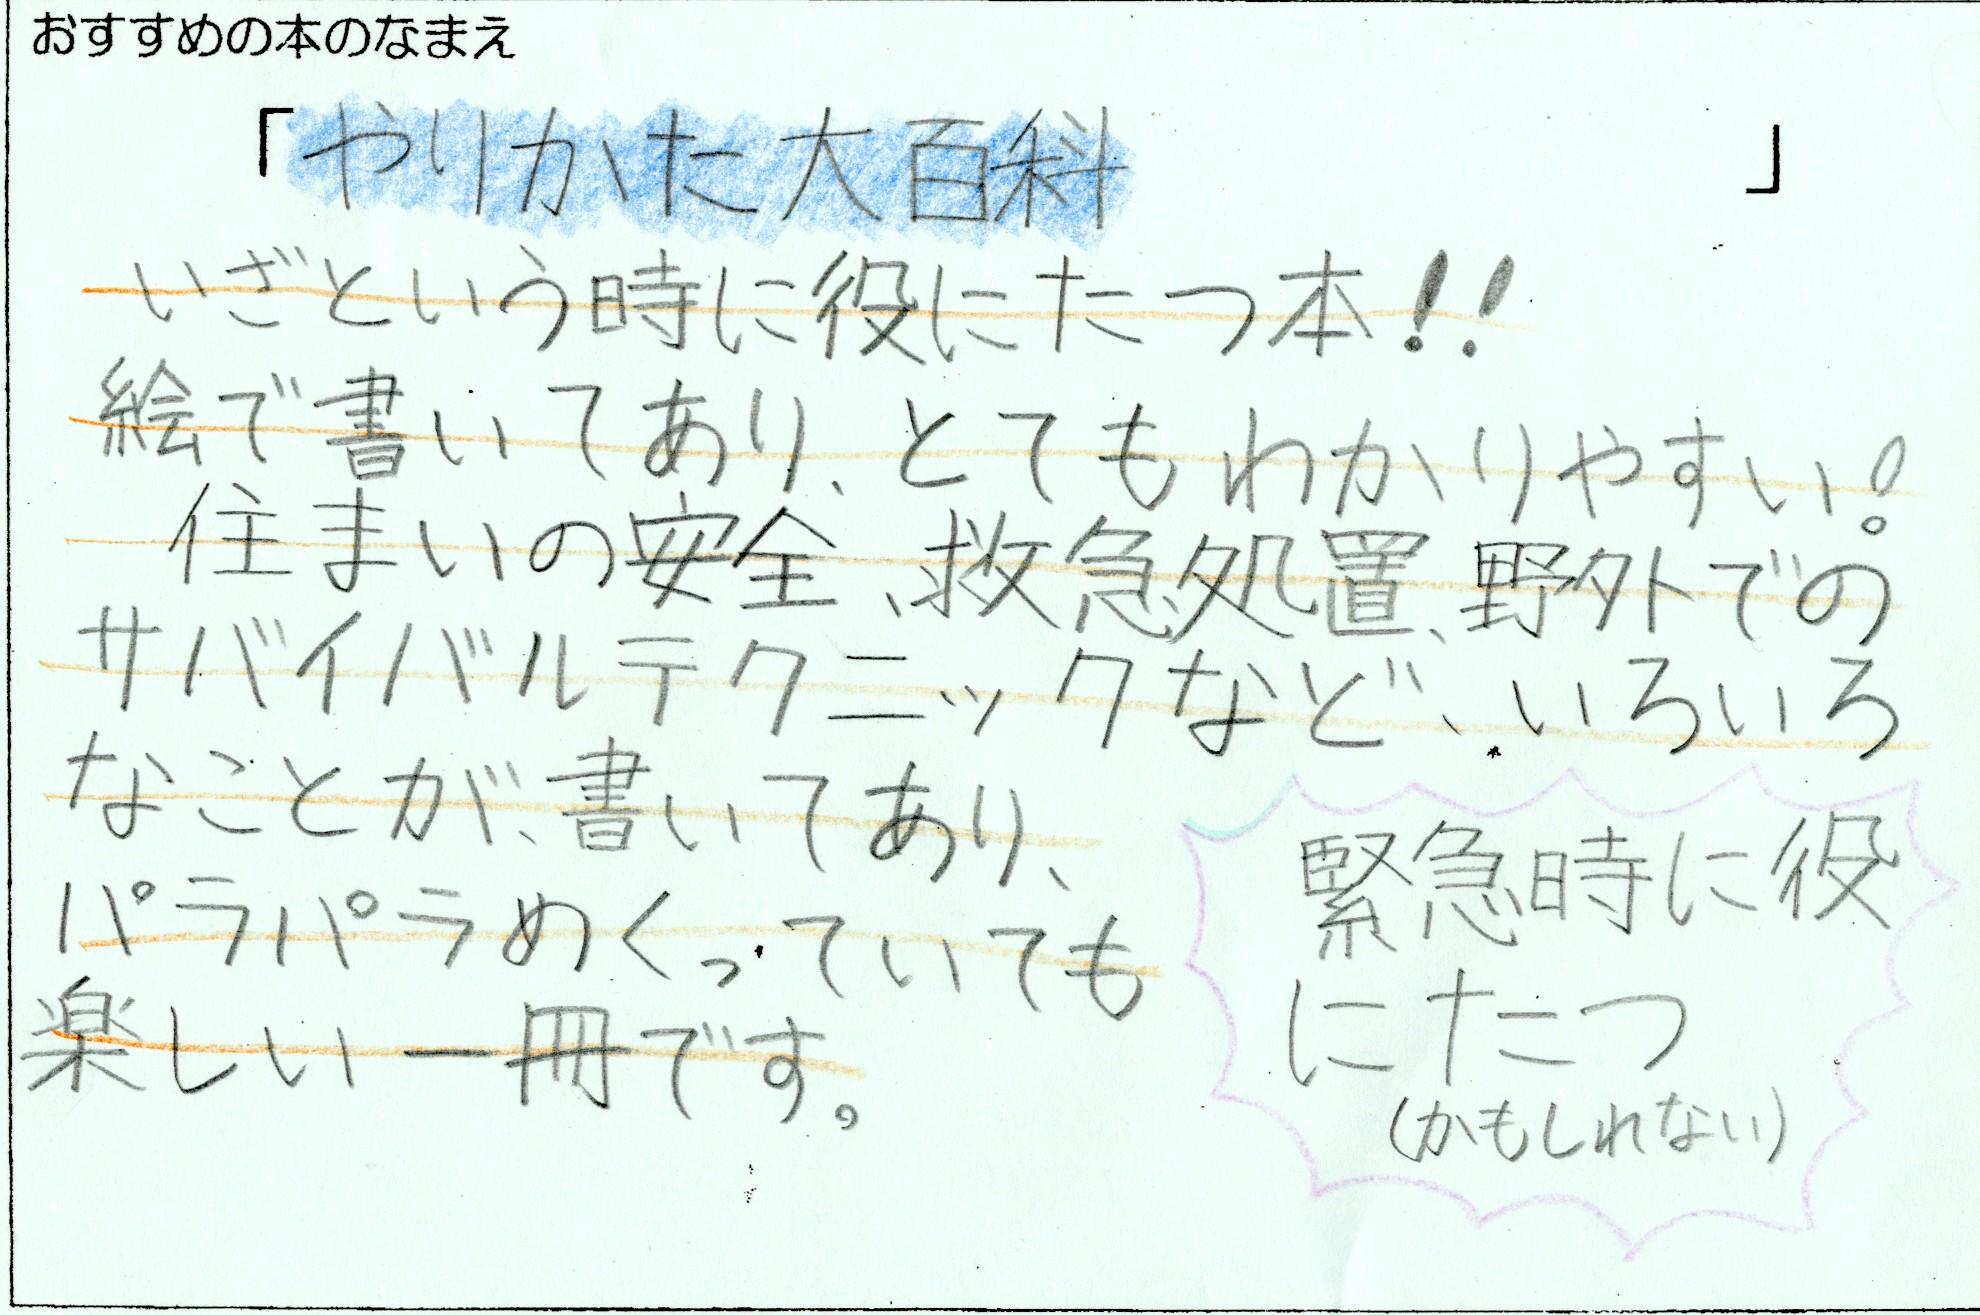 おすすめの本のなまえ
「やりかた大百科」
いざという時に役にたつ本!!
絵で書いてあり、とてもわかりやすい!
住まいの安全、救急処置、野外での
サバイバルテクニックなど、いろいろ
なことが、書いてあり、
パラパラめくっていても
楽しい一冊です。
緊急時に役
にたつ
(かもしれない)